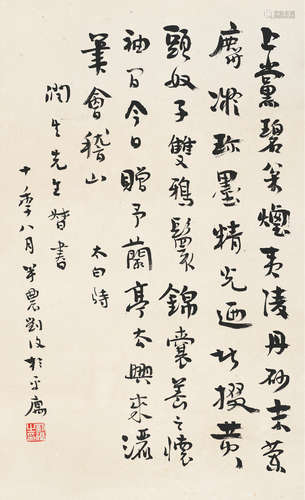 上黨碧枀煙夷陵丹砂末蘭
麝凝珍墨精光迺堪掇黃
頭奴子雙鴉鬟錦囊養之懷
袖間今日贈予蘭亭去興來灑
筆會稽山
太白詩
潤生先生督書
十年八月半農劉復於平寓